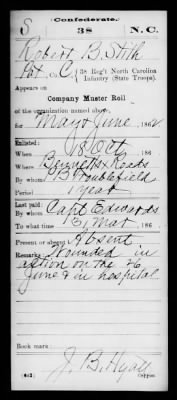 Confederate.
S 38 N.C.
Robert B. Stith
Pvt, Co. C, 38 Reg't North Carolina
Infantry (State Troops).
Appears on
Company Muster Roll
of the organization named above,
for May & June, 1862
Enlisted:
When 18 Oct, 186
Where Burnetts X Roads
By whom B. Troublefield
Period 1 year
Last paid:
By whom Capt Edwards
To what time 31 Mar, 186
Present or absent Absent
Remarks: Wounded in
action on the 26
June & in hospital
Book mark:
J. B. Hyatt
(642) Copyist.